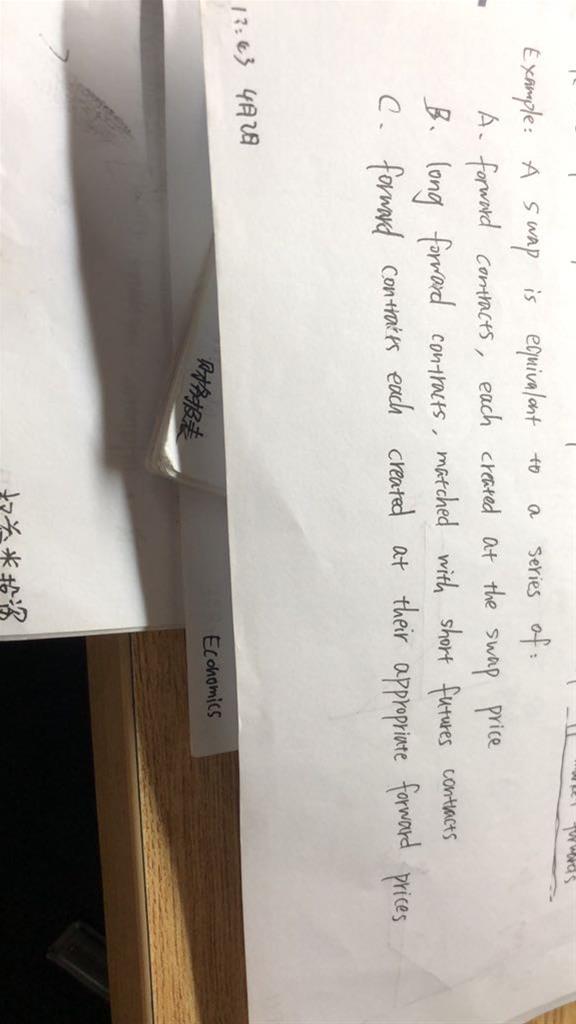 market forwards
Example: A swap is equivalent to a series of:
A. forward contracts, each created at the swap price
B. long forward contracts, matched with short futures contracts
C. forward contracts each created at their appropriate forward prices
12:63 4月2日
财务报表
Economics
权益投资